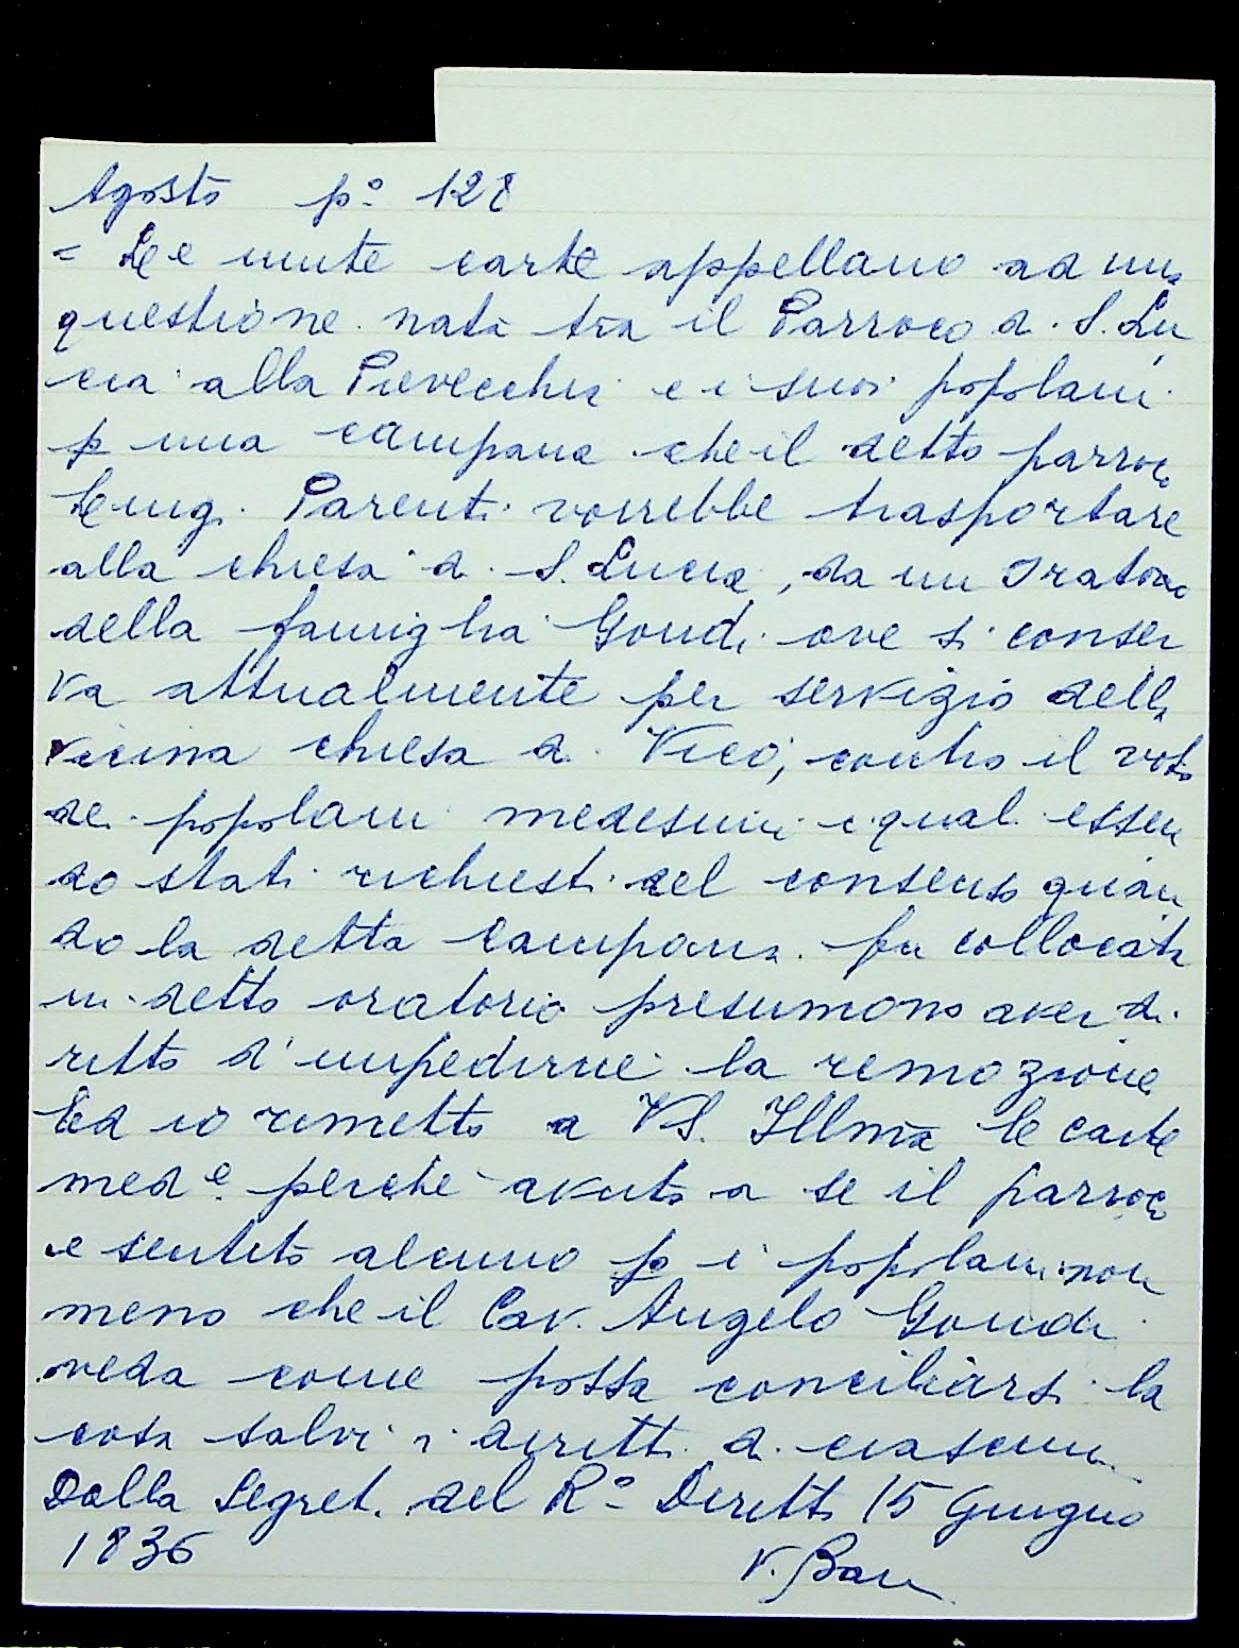 Agosto p.º 128
= Le unite carte appellano ad una
questione nata tra il Parroco di S. Lu
cia alla Pievecchia e i suoi popolani
p una campana che il detto parroco
Luigi Parenti vorrebbe trasportare
alla chiesa di S. Lucia, da un Oratorio
della famiglia Gondi ove si conser
va attualmente per servizio della
vicina chiesa di Vico, contro il voto
dei popolani medesimi i quali essen
do stati richiesti del consenso quan
do la detta campana fu collocata
in detto oratorio presumono aver di
ritto d'impedirne la remozione
Ed io rimetto a VS. Illma le carte
med.e perché avuto a se il parroco
e sentito alcuno p i popolani non
meno che il Cav. Angelo Gondi
veda come possa conciliarsi la
cosa salvi i diritti di ciascuno
Dalla Segret. del R.º Diritto 15 Giugno
1836 V. Bani